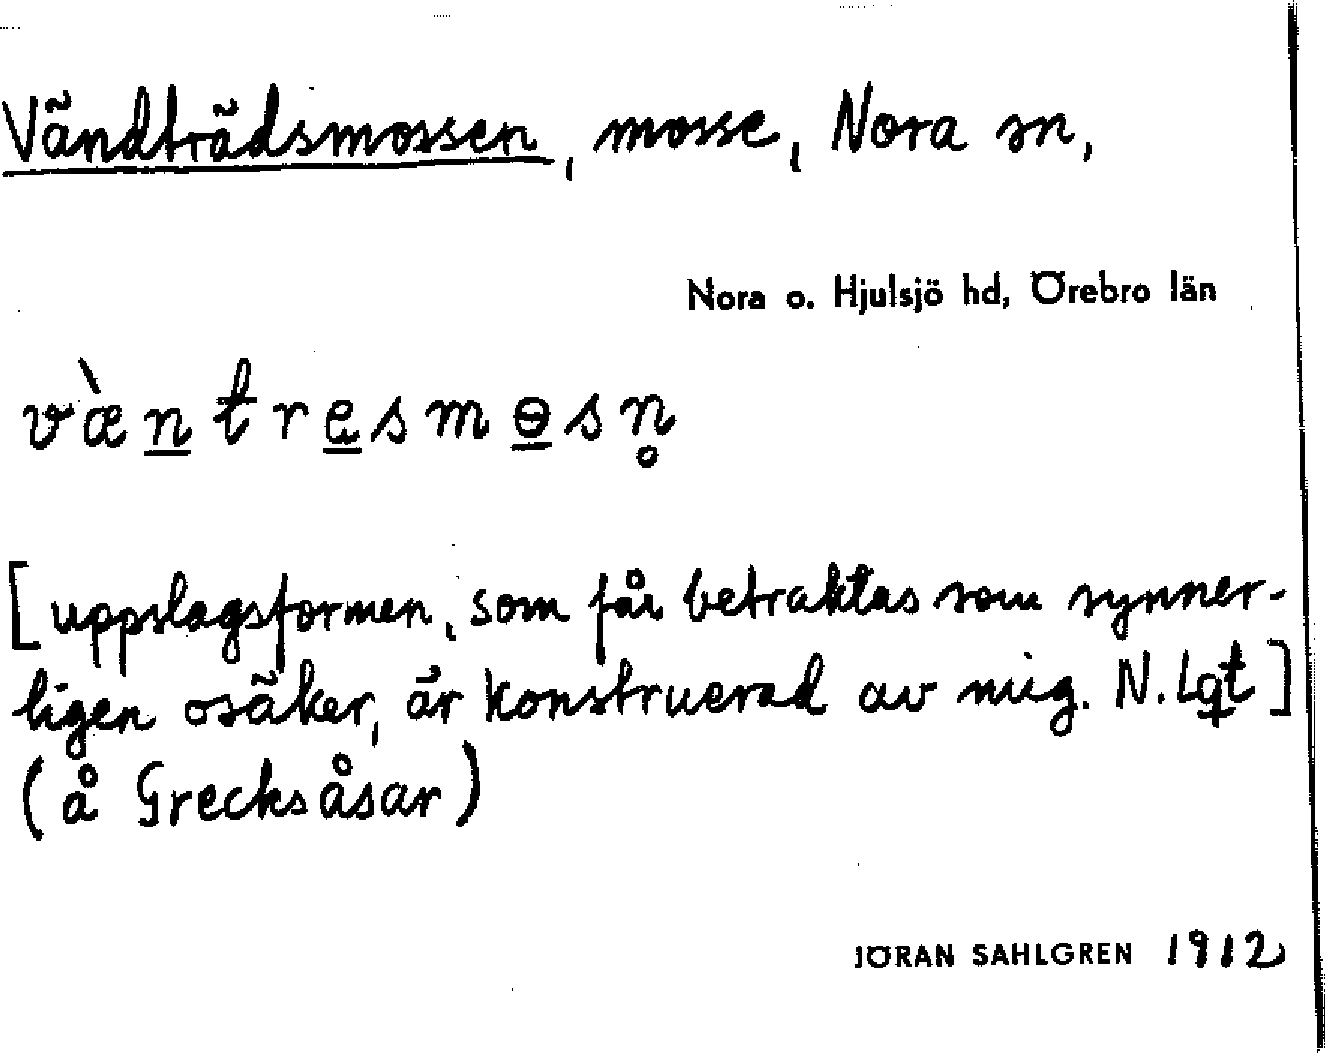 Vändträdsmossen, mosse, Nora sn,
Nora o. Hjulsjö hd, Örebro län
væ̀n̲tre̲smɵ̲sn̥
[uppslagsformen, som får betraktas som synner-
ligen osäker, är konstruerad av mig. N. Lgt]
(å Grecksåsar)
JÖRAN SAHLGREN 1912